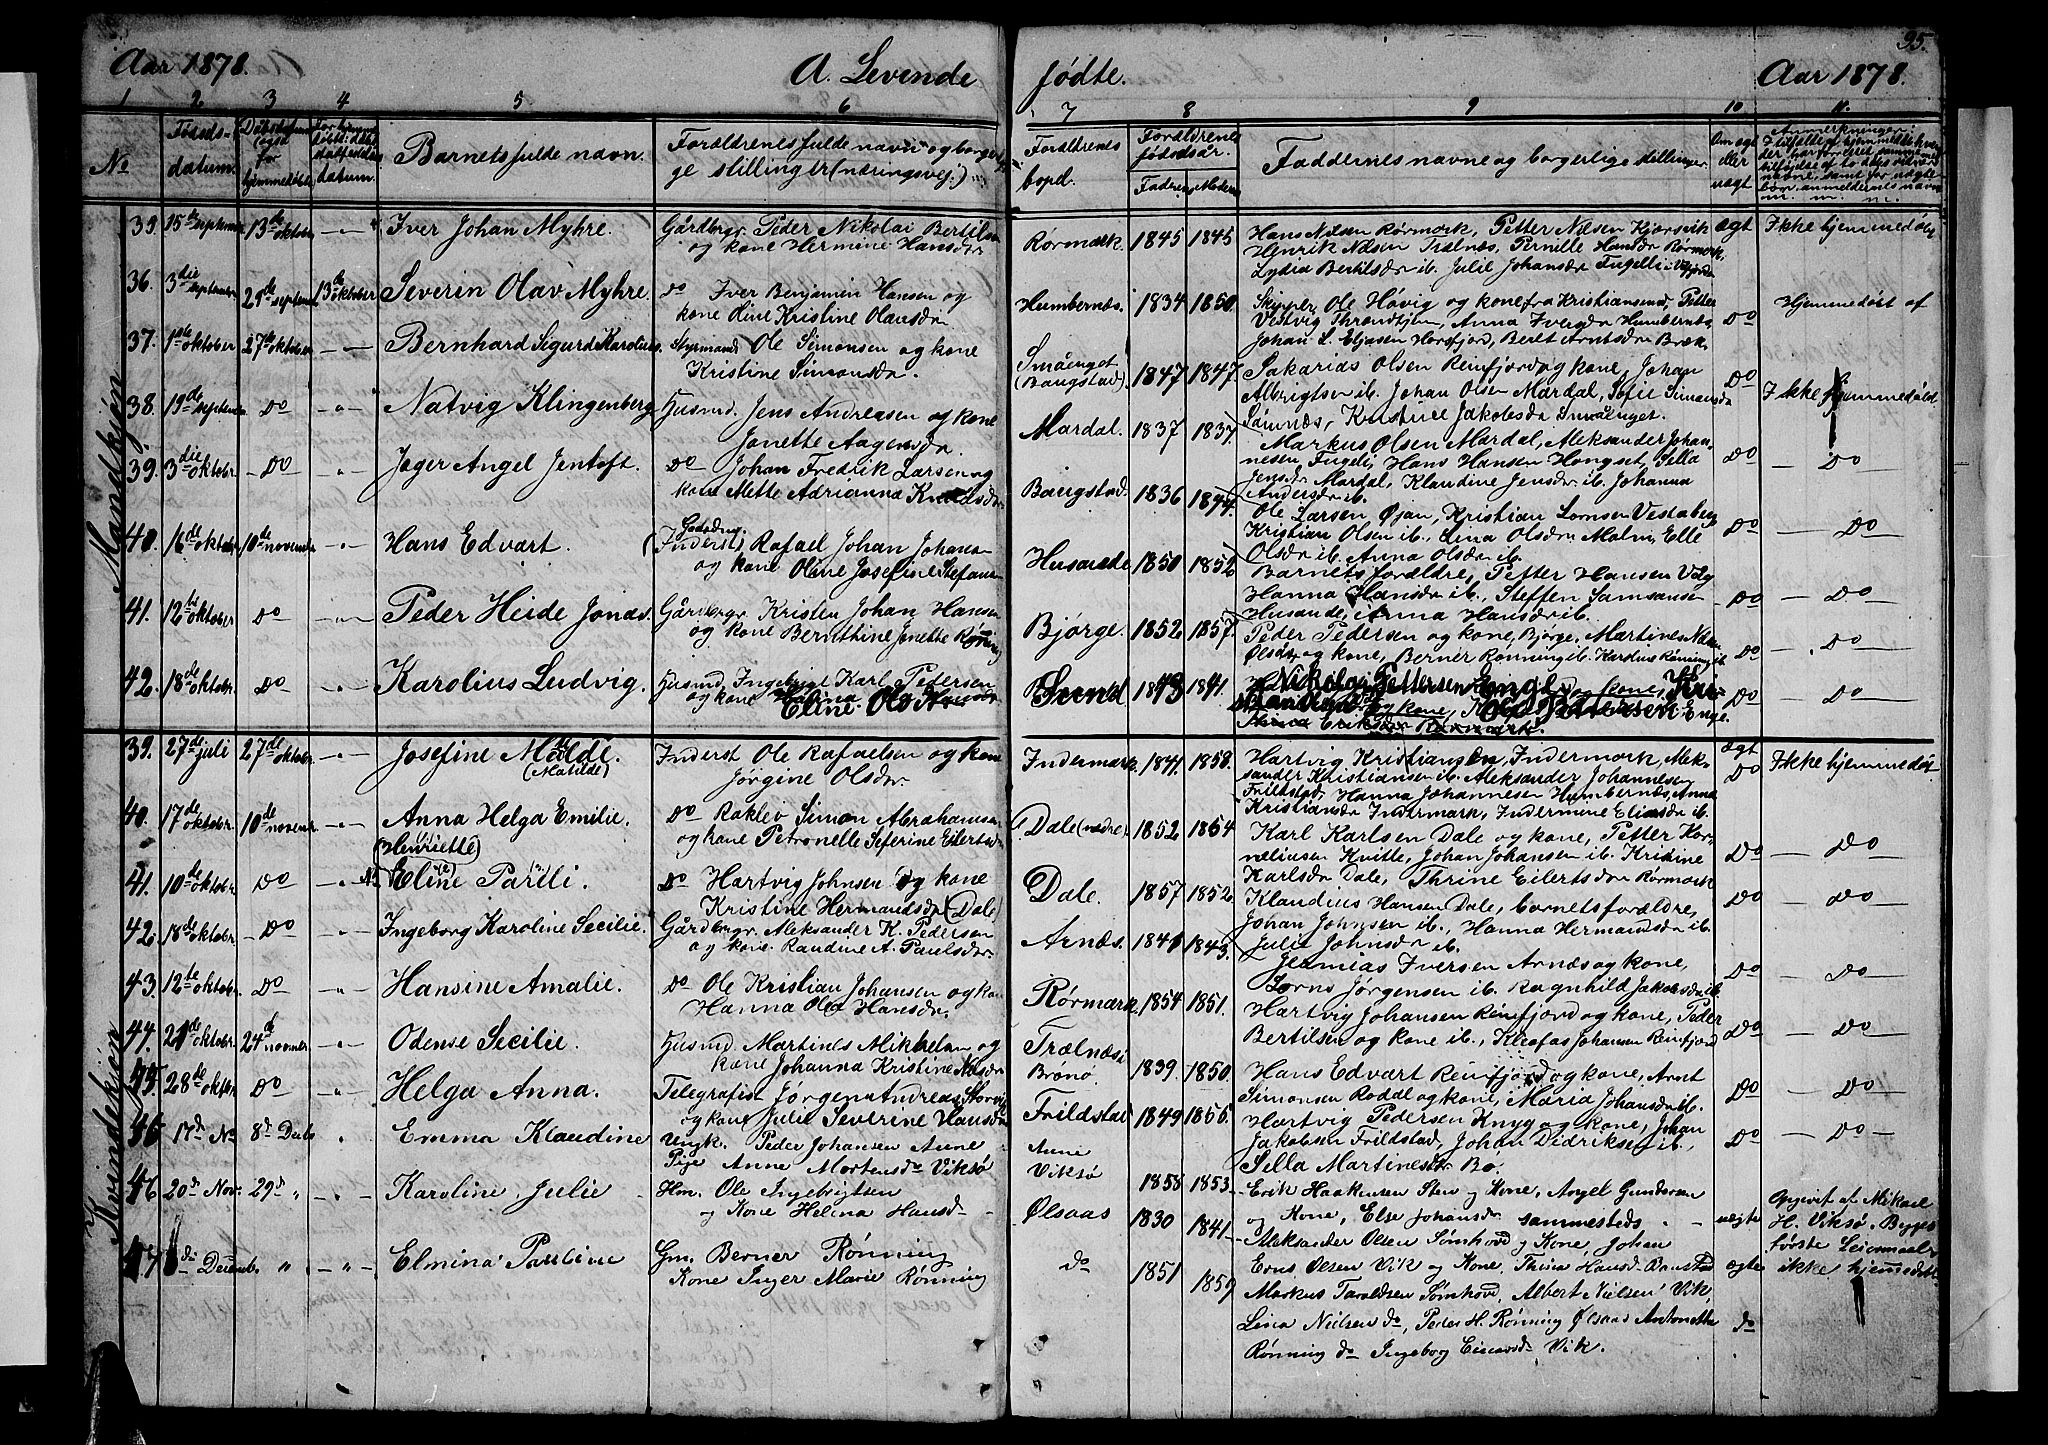 95.
Aar 1878. A. Levende fødte. Aar 1878.
1 2 3 4 5 6 7 8 9 10 11.
No Fødselsdatum. Barnets fulde navn. Forældrenes fulde navn og borgerlige stillinger (næringsvej.) Forældrenes bopel. Forældrenes fødselsaar. Fadderenes navne og borgerlige stillinger.
Fadrens Modrens
Mandkjøn
39. 15de september 13de oktober Iver Johan Myhre. Gårdbrgr. Peder Nikolai Bertilsen Rørmark. 1845 1845 Hans Nilsen Rørmark, Petter Nilsen Kjørsvik ægt Ikke hjemmedøbt
og kone Hermine Hansdr. Henrik Nilsen Trælnæs, Pernille Hansdr Rørmark,
Lydia Bertilsdr ib. Julie Johansdr Fugelli i Velfjorden
36. 3die september 29de september 13de oktober Severin Olav Myhre. Do Iver Benjamin Hansen og Humbernæs. 1834 1850 Skipper Ole Høvig og kone fra Kristiansund, Petter Do Hjemmedøbt af
kone Oline Kristine Olausdr. Vestvig Throndhjem, Anna Iversdr Humbernæs,
Johan L. Eliasen Horsfjor, Beret Arntsdr Bræk
37. 1ste oktober 27de oktober Bernhard Sigurd Karolius. Styrmand Ole Simonsen og kone Småenget (Bangstad). 1847 1847 Sakarias Olsen Reinfjord og kone, Johan Do Ikke hjemmedøbt.
Kristine Simonsdr. Albrigtsen ib. Johan Olsen Mardal, Sofie Simonsdr
Sømnæs, Kristine Jakobsdr Småenget.
38. 19de september Do Natvig Klingenberg Husmd. Jens Andreasen og kone Mardal. 1837 1837 Markus Olsen Mardal, Aleksander Johan- Do Do
Janette Aagesdr. nesen Fugeli, Hans Hansen Hongset, Sella
Jensdr Mardal, Klaudine Jensdr ib. Johanna
Andersdr ib.
39. 3die oktobr. Do Jøger Angel Jentoft. Do Johan Fredrik Larsen og Bangstad. 1836 1874. Ole Larsen Øjan, Kristian Larsen Vestaberg Do Do
kone Mette Adrianna Knudsdr Kristian Olsen ib., Lina Olsdr Malm, Elle
Olsdr ib. Anna Olsdr ib.
40. 16de oktobr. 10de november Hans Edvart. (Inderst) Rafael Johan Johansen Husarede 1850 1852 Barnets forældre, Petter Hansen Valg Do Do
og kone Oline Josefine Stefansen Hanna Hansdr ib., Steffen Samsonsen
Husande, Anna Hansdr ib.
41. 12te oktober Do Peder Heide Jonas. Gårdbrgr. Kristen Johan Hansen Bjørge. 1852 1857. Peder Pedersen og kone, Bjørge, Martines Nilsen Do Do
og kone Bernthine Janette Rønning og kone, Berner Rønning ib. Kardius Rønning ib.
42. 18de oktobr. Do Karolius Ludvig. Husmd. Ingebrigt Karl Pedersen Sund 1843 1841. Nikolai Pettersen Enge Do Do
og kone Eline Olsdr Ole Pettersen Enge.
Kvindekjøn
39. 27de juli 27de oktober Josefine Milde. Inderst Ole Rafaelsen og kone Indermark. 1841. 1858. Hartvig Kristiansen, Indermark, Alek- ægt Do Ikke hjemmedøbt
(Matilde) Jørgine Olsdr. sander Kristiansen ib. Aleksander Johannesen
Frilstad, Hanna Johannesen Humbernæs, Anna
Kristiansdr Indermark, Indermine Eliasdr ib.
40. 17de oktober. 10de novembr Anna Helga Emilie. Do Rakløv Simon Abrahamsen Dale (nedre). 1852. 1854 Karl Karlsen Dale og kone, Petter Kor- Do Do
(Henriette) og kone Petronelle Seferine Eilertsdr. neliusen Kvitte, Johan Johansen ib. Kristine
Karlsdr Dale, Thrine Eilertsdr Rørmark
41. 10de oktobr. Do Eline Parelli. Do Hartvig Johnsen og kone Dale. 1857 1852. Klaudius Hansen Dale, barnets forældre, Do Do
Kristine Hermansdr (Dale) Johan Johnsen ib., Hanna Hermansdr ib.
Julie Johnsdr ib.
42. 18de oktobr. Do Ingeborg Karoline Secilie. Gårdbrgr. Aleksander K. Pedersen Arnæs. 1840 1843. Jeremias Iversen Arnæs og kone, Do Do
og kone Randine A. Paulsdr. Lorns Jørgensen ib. Ragnhild Jakobsdr ib.
43. 12te oktobr. Do Hansine Amalie. Do Ole Kristian Johansen og kone Rørmark 1854 1851. Hartvig Johansen Reinfjord og kone, Peder Do Do
Hanna Olea Hansdr. Bertilsen og kone ib., Kleofas Johansen Reinfjord
44. 21de oktobr. 24de novembr. Odense Secilie. Husmd. Martines Mikkelsen og Trælnæs i Brønø. 1839. 1850. Hans Edvart Reinfjord og kone, Arnt Do Do
kone Johanna Kristine Nilsdr Simonsen Roddal og kone, Maria Johansdr ib.
45. 28de oktbr. Do Helga Anna. Telegrafist Jørgen Andreas Storvik Frilstad 1849 1855. Hartvig Pedersen Knyg og kone, Johan Do Do
og kone Julie Severine Hansdr Jakobsen Frilstad, Johan Didriksen ib.,
Sella Martinesdr Bø.
46 17d No 8d Decb. Emma Klaudine Ungk. Peder Johansen Aune Aune
Pige Anne Mortensdr Viksø Viksø 1855 1853. Erik Haakensen Sten og Kone, Angel Gundersen uægte Opgivet af Mikael
og Kone, Else Johansdr sammesteds H. Viksø. Begges
første Leiermaal
46 20d Nov. 29d „ Karoline Julie Hm. Ole Ingebrigtsen Ølsaas 1830 1841 Aleksander Olsen Sømhovd og Kone, Johan ægte ikke hjemmedøbt
og Kone Helena Hansd.
47 d Decemb. „ Elmina Pauline Gm. Berner Rønning do 1851 1859 Erns Olsen Vik og Kone, Thina Hansd. do
Kone Inger Marie Rønning Markus Taraldsen Sømhovd, Albert Nielsen Vik
Lina Nielsen do, Peder H. Rønning Ølsaas Antonette
Rønning do Ingeborg Einarsd. Vik.